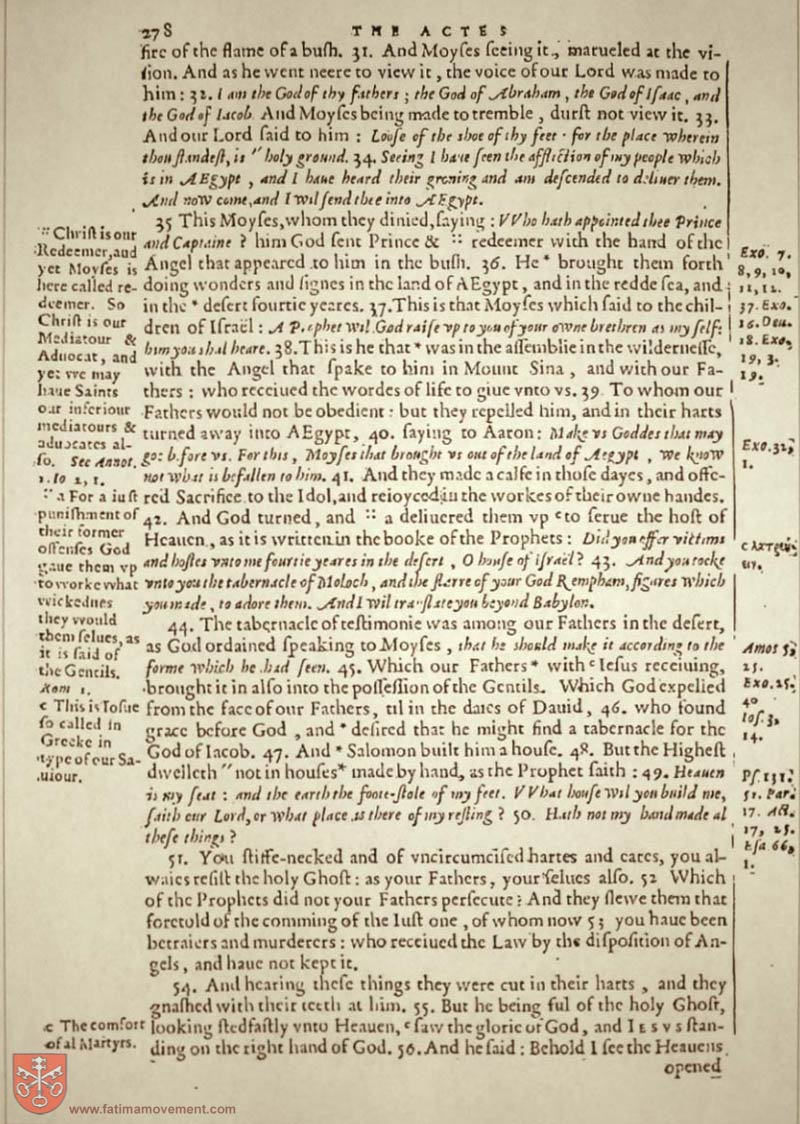 278
THE ACTES
fire of the flame of a bush. 31. And Moyses seeing it, marueled at the vi-
sion. And as he went neere to view it, the voice of our Lord was made to
him: 32. I am the God of thy fathers; the God of Abraham, the God of Isaac, and
the God of Iacob. And Moyses being made to tremble, durst not view it. 33.
And our Lord said to him: Loose of the shoe of thy feet: for the place wherein
thou standest, is " holy ground. 34. Seeing I haue seen the affliction of my people which
is in AEgypt, and I haue heard their groning and am descended to deliuer them.
And now come, and I wil send thee into AEgypt.
35 This Moyses, whom they denied, saying: VVho hath appointed thee Prince
and Captaine? him God sent Prince & :: redeemer with the hand of the
Angel that appeared to him in the bush. 36. He * brought them forth
doing wonders and signes in the land of AEgypt, and in the redde sea, and
in the * desert fourtie yeares. 37. This is that Moyses which said to the chil-
dren of Israël: A Prophet wil God raise vp to you of your owne brethren as my self:
him you shal heare. 38. This is he that * was in the assemblie in the wildernesse,
with the Angel that spake to him in Mount Sina, and with our Fa-
thers: who receiued the wordes of life to giue vnto vs. 39. To whom our
Fathers would not be obedient: but they repelled him, and in their harts
turned away into AEgypt, 40. saying to Aaron: Make vs Goddes that may
goe before vs. For this, Moyses that brought vs out of the land of Aegypt, we know
not what is befallen to him. 41. And they made a calfe in those dayes, and offe-
red Sacrifice to the Idol, and reioyced in the workes of their owne handes.
42. And God turned, and :: a deliuered them vp c to serue the host of
Heauen, as it is written in the booke of the Prophets: Did you offer victims
and hostes vnto me fourtie yeares in the desert, O house of israël? 43. And you tooke
vnto you the tabernacle of Moloch, and the sterre of your God Rempham, figures which
you made, to adore them. And I wil translate you beyond Babylon.
44. The tabernacle of testimonie was among our Fathers in the desert,
as God ordained speaking to Moyses, that he should make it according to the
forme which he had seen. 45. Which our Fathers * with c Iesus receiuing,
brought it in also into the possession of the Gentils. Which God expelled
from the face of our Fathers, til in the daies of Dauid, 46. who found
grace before God, and * desired that he might find a tabernacle for the
God of Iacob. 47. And * Salomon built him a house. 48. But the Highest
dwelleth " not in houses * made by hand, as the Prophet saith: 49. Heauen
is my seat: and the earth the foote-stole of my feet. VVhat house wil you build me,
saith our Lord, or what place is there of my resting? 50. Hath not my hand made al
these things?
51. You stiffe-necked and of vncircumcised hartes and eares, you al-
waies resist the holy Ghost: as your Fathers, your selues also. 52 Which
of the Prophets did not your Fathers persecute? And they slewe them that
foretold of the comming of the Iust one, of whom now 53 you haue been
betraiers and murderers: who receiued the Law by the disposition of An-
gels, and haue not kept it.
54. And hearing these things they were cut in their harts, and they
gnashed with their teeth at him. 55. But he being ful of the holy Ghost,
looking stedfastly vnto Heauen, c saw the glorie of God, and IESVS stan-
ding on the right hand of God. 56. And he said: Behold I see the Heauens
opened
:: Christ is our
Redeemer, and
yet Moyses is
here called re-
deemer. So
Christ is our
Mediatour &
Aduocat, and
yet we may
haue Saints
our inferiour
mediatours &
aduocates al-
so. See Annot.
1. Io 2, 1.
:: a For a iust
punishment of
their former
offenses God
gaue them vp
to worke what
wickednes
they would
them selues, as
it is said of
the Gentils.
Rom 1.
c This is Iosue
so called in
Greeke in
type of our Sa-
uiour.
c The comfort
of al Martyrs.
Exo. 7.
8, 9, 10,
11, 12.
37. Exo.
16. Deu.
18. Exo.
19, 3.
19.
Exo. 32,
1.
Amos 5,
25.
Exo. 25,
40
Ios. 3,
14.
Ps. 131.
51. Par.
17. Act.
17, 25.
Esa 66,
1.
www.fatimamovement.com